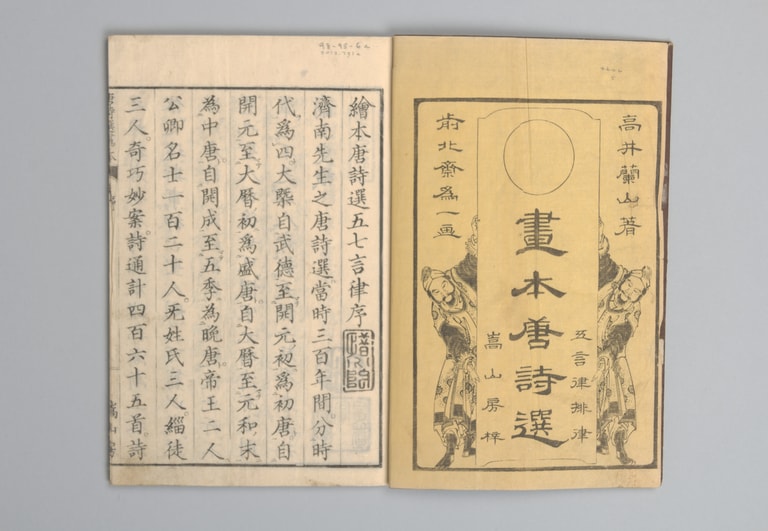 高井蘭山著
五言律排律
畫本唐詩選
嵩山房梓
前北齋爲一画
繪本唐詩選五七言律序
濟南先生之唐詩選當時三百年間分時
代爲四大槩自武德至開元初爲初唐自
開元至大曆初爲盛唐自大曆至元和末
爲中唐自開成至五季爲晩唐帝王二人
公卿名士一百二十人无姓氏三人緇徒
三人奇巧妙案詩通計四百六十五首詩
嵩山房